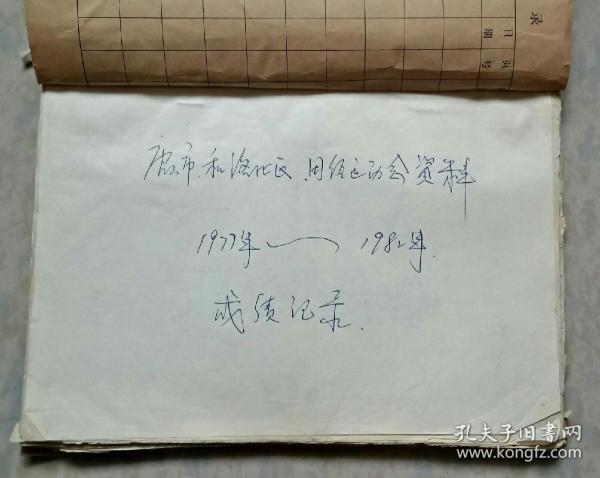 录
日期
页号
市和洛北区田径运动会资料
1977年——1982年.
成绩记录.
孔夫子旧书网
www.kongfz.com